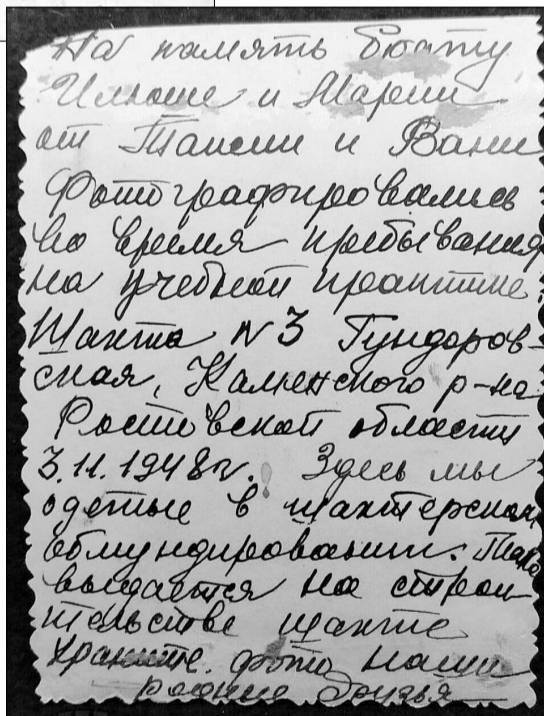 На память брату
Илюше и Марии
от Таисии и Вани
Фотографировались
во время пребывания
на учебной практике.
Шахта N 3 Гундоров-
ская, Каменского р-на
Ростовской области
3.11.1948г. Здесь мы
одетые в шахтерском
обмундировании.
выдается на строи
тельстве шахте
Храните фото наши
родные друзья